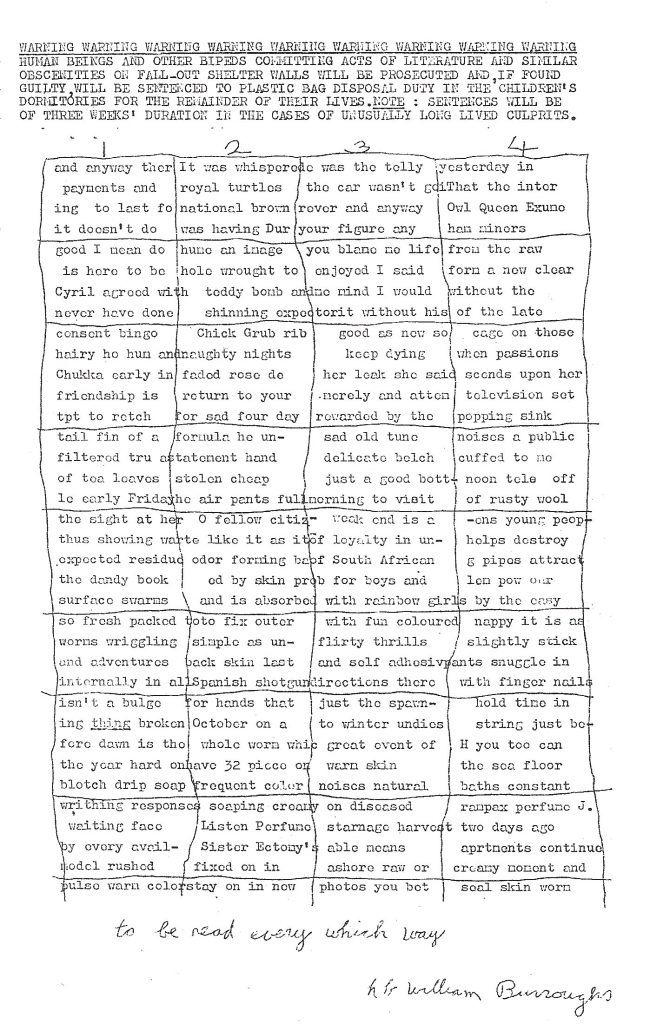 WARNING WARNING WARNING WARNING WARNING WARNING WARNING WARNING WARNING
HUMAN BEINGS AND OTHER BIPEDS COMMITTING ACTS OF LITERATURE AND SIMILAR
OBSCENITIES ON FALL-OUT SHELTER WALLS WILL BE PROSECUTED AND,IF FOUND
GUILTY,WILL BE SENTENCED TO PLASTIC BAG DISPOSAL DUTY IN THE CHILDREN'S
DORMITORIES FOR THE REMAINDER OF THEIR LIVES.NOTE : SENTENCES WILL BE
OF THREE WEEKS' DURATION IN THE CASES OF UNUSUALLY LONG LIVED CULPRITS.
1 2 3 4
and anyway ther It was whispered e was the telly yesterday in
payments and royal turtles the car wasn't goi That the inter
ing to last fo national brown rever and anyway Owl Queen Exume
it doesn't do was having Dur your figure any han miners
good I mean do hume an image you blame me life from the raw
is here to be hole wrought to enjoyed I said form a new clear
Cyril agreed with teddy bomb and me mind I would without the
never have done shinning expectorit without his of the late
consent bingo Chick Grub rib good as new so cage on those
hairy ho hum and naughty nights keep dying when passions
Chukka early in faded rose de her leak she said seends upon her
friendship is return to your merely and atten television set
tpt to retch for sad four day rewarded by the popping sink
tail fin of a formula he un- sad old tune noises a public
filtered tru a statement hand delicate belch cuffed to me
of tea leaves stolen cheap just a good bott- noon tele off
le early Friday he air pants full morning to visit of rusty wool
the sight at her O fellow citiz- week end is a -ens young peop-
thus showing war te like it as it of loyalty in un- helps destroy
expected residue odor forming ba of South African g pipes attract
the dandy book ed by skin prob for boys and len pow our
surface swarms and is absorbed with rainbow girls by the easy
so fresh packed to fix outer with fun coloured nappy it is as
worms wriggling simple as un- flirty thrills slightly stick
and adventures back skin last and self adhesiv pants snuggle in
internally in all Spanish shotgun directions there with finger nails
isn't a bulge for hands that just the spawn- hold time in
ing thing broken October on a to winter undies string just be-
fore dawn is the whole worm whic great event of H you too can
the year hard on have 32 piece on warm skin the sea floor
blotch drip soap frequent color noises natural baths constant
writhing responses soaping creamy on diseased rampax perfume J.
waiting face Listen Perfume starnage harvest two days ago
by every avail- Sister Ectomy's able means aprtments continue
model rushed fixed on in ashore raw or creamy moment and
pulse warm color stay on in new photos you bet seal skin worn
to be read every which way
William Burroughs